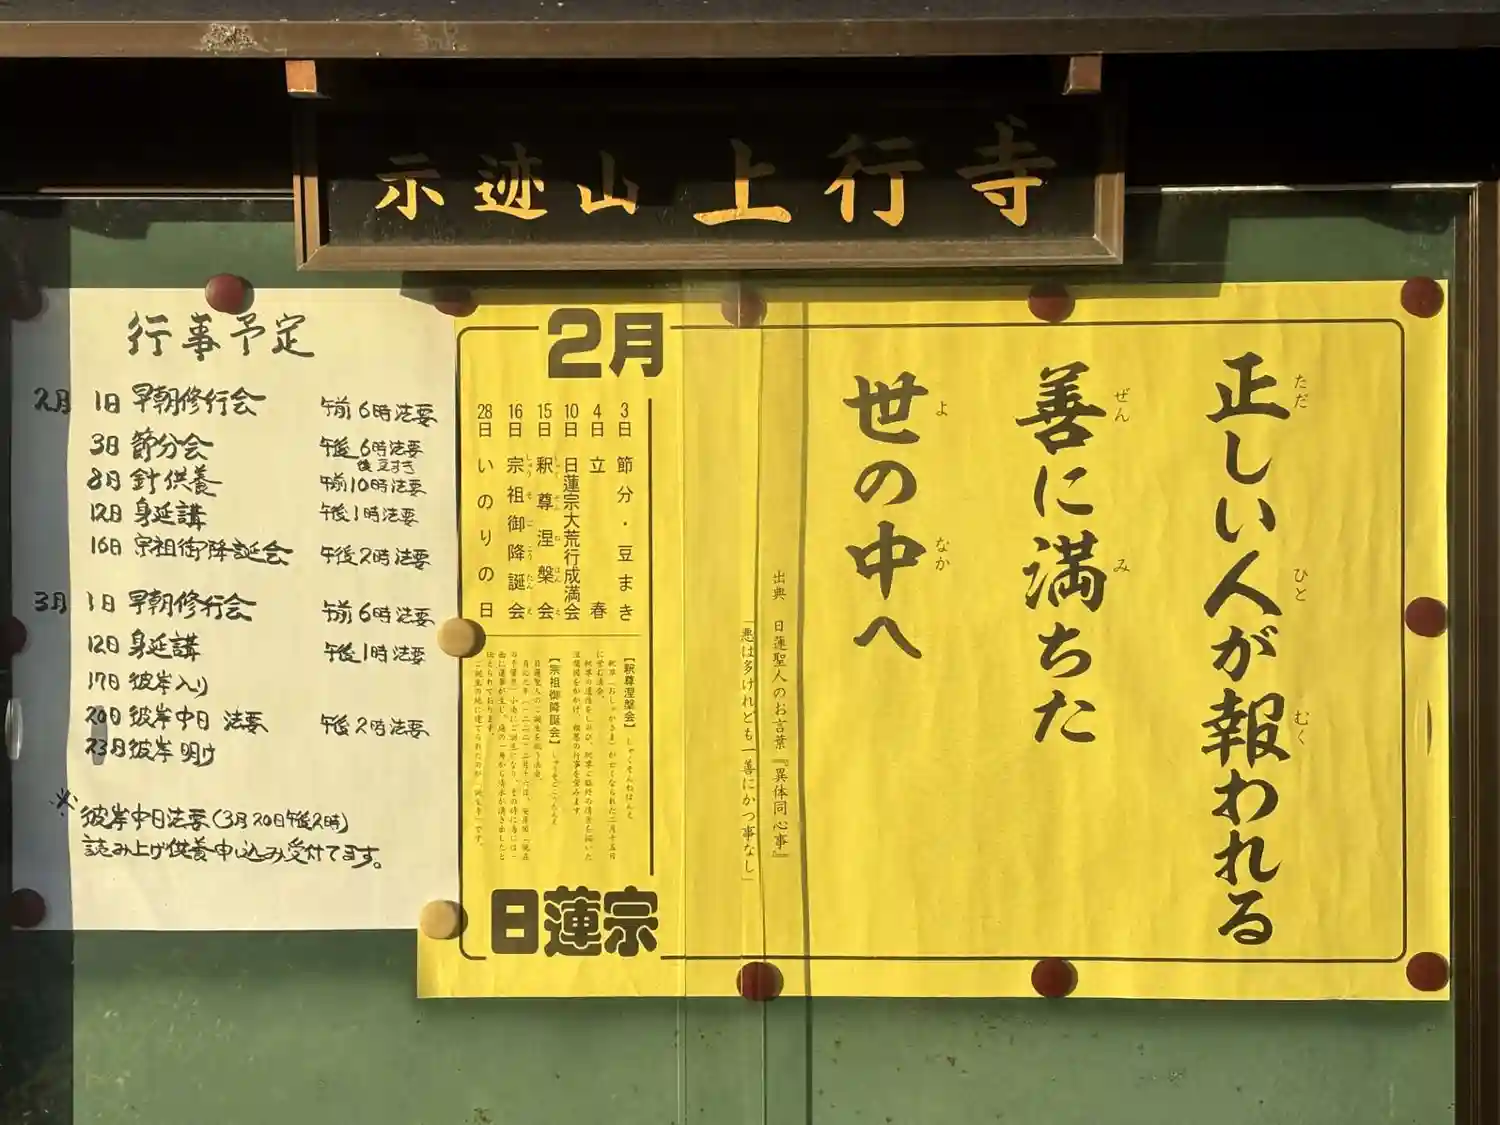 示迹山 上行寺
行事予定
2月 1日 早朝修行会 午前6時法要
3日 節分会 午後6時法要
後豆まき
8日 針供養 午前10時法要
12日 身延講 午後1時法要
16日 宗祖御降誕会 午後2時法要
3月 1日 早朝修行会 午前6時法要
12日 身延講 午後1時法要
17日 彼岸入り
20日 彼岸中日 法要 午後2時法要
23日 彼岸明け
※
彼岸中日法要(3月20日午後2時)
読み上げ供養申し込み受付てます。
正しい人が報われる
ただ ひと むく
善に満ちた
ぜん み
世の中へ
よ なか
出典 日蓮聖人のお言葉『異体同心事』
「悪は多けれども一善にかつ事なし」
2月
3日 節分・豆まき
4日 立春
10日 日蓮宗大荒行成満会
15日 釈尊涅槃会
しゃくそんねはんえ
16日 宗祖御降誕会
しゅうそごこうたんえ
28日 いのりの日
【釈尊涅槃会】しゃくそんねはんえ
【宗祖御降誕会】しゅうそごこうたんえ
日蓮宗